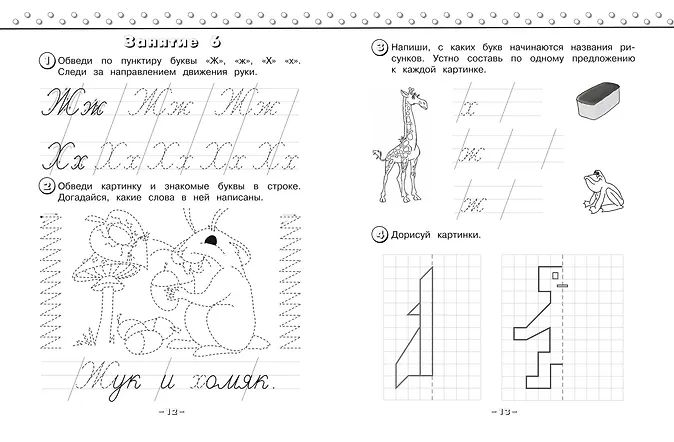 Занятие 6
1 Обведи по пунктиру буквы «Ж», «ж», «Х» «х».
Следи за направлением движения руки.
Жж Жж Жж
Хх Хх Хх Хх Хх
2 Обведи картинку и знакомые буквы в строке.
Догадайся, какие слова в ней написаны.
Жук и хомяк.
– 12 –
3 Напиши, с каких букв начинаются названия ри-
сунков. Устно составь по одному предложению
к каждой картинке.
х
ж
ж
4 Дорисуй картинки.
– 13 –